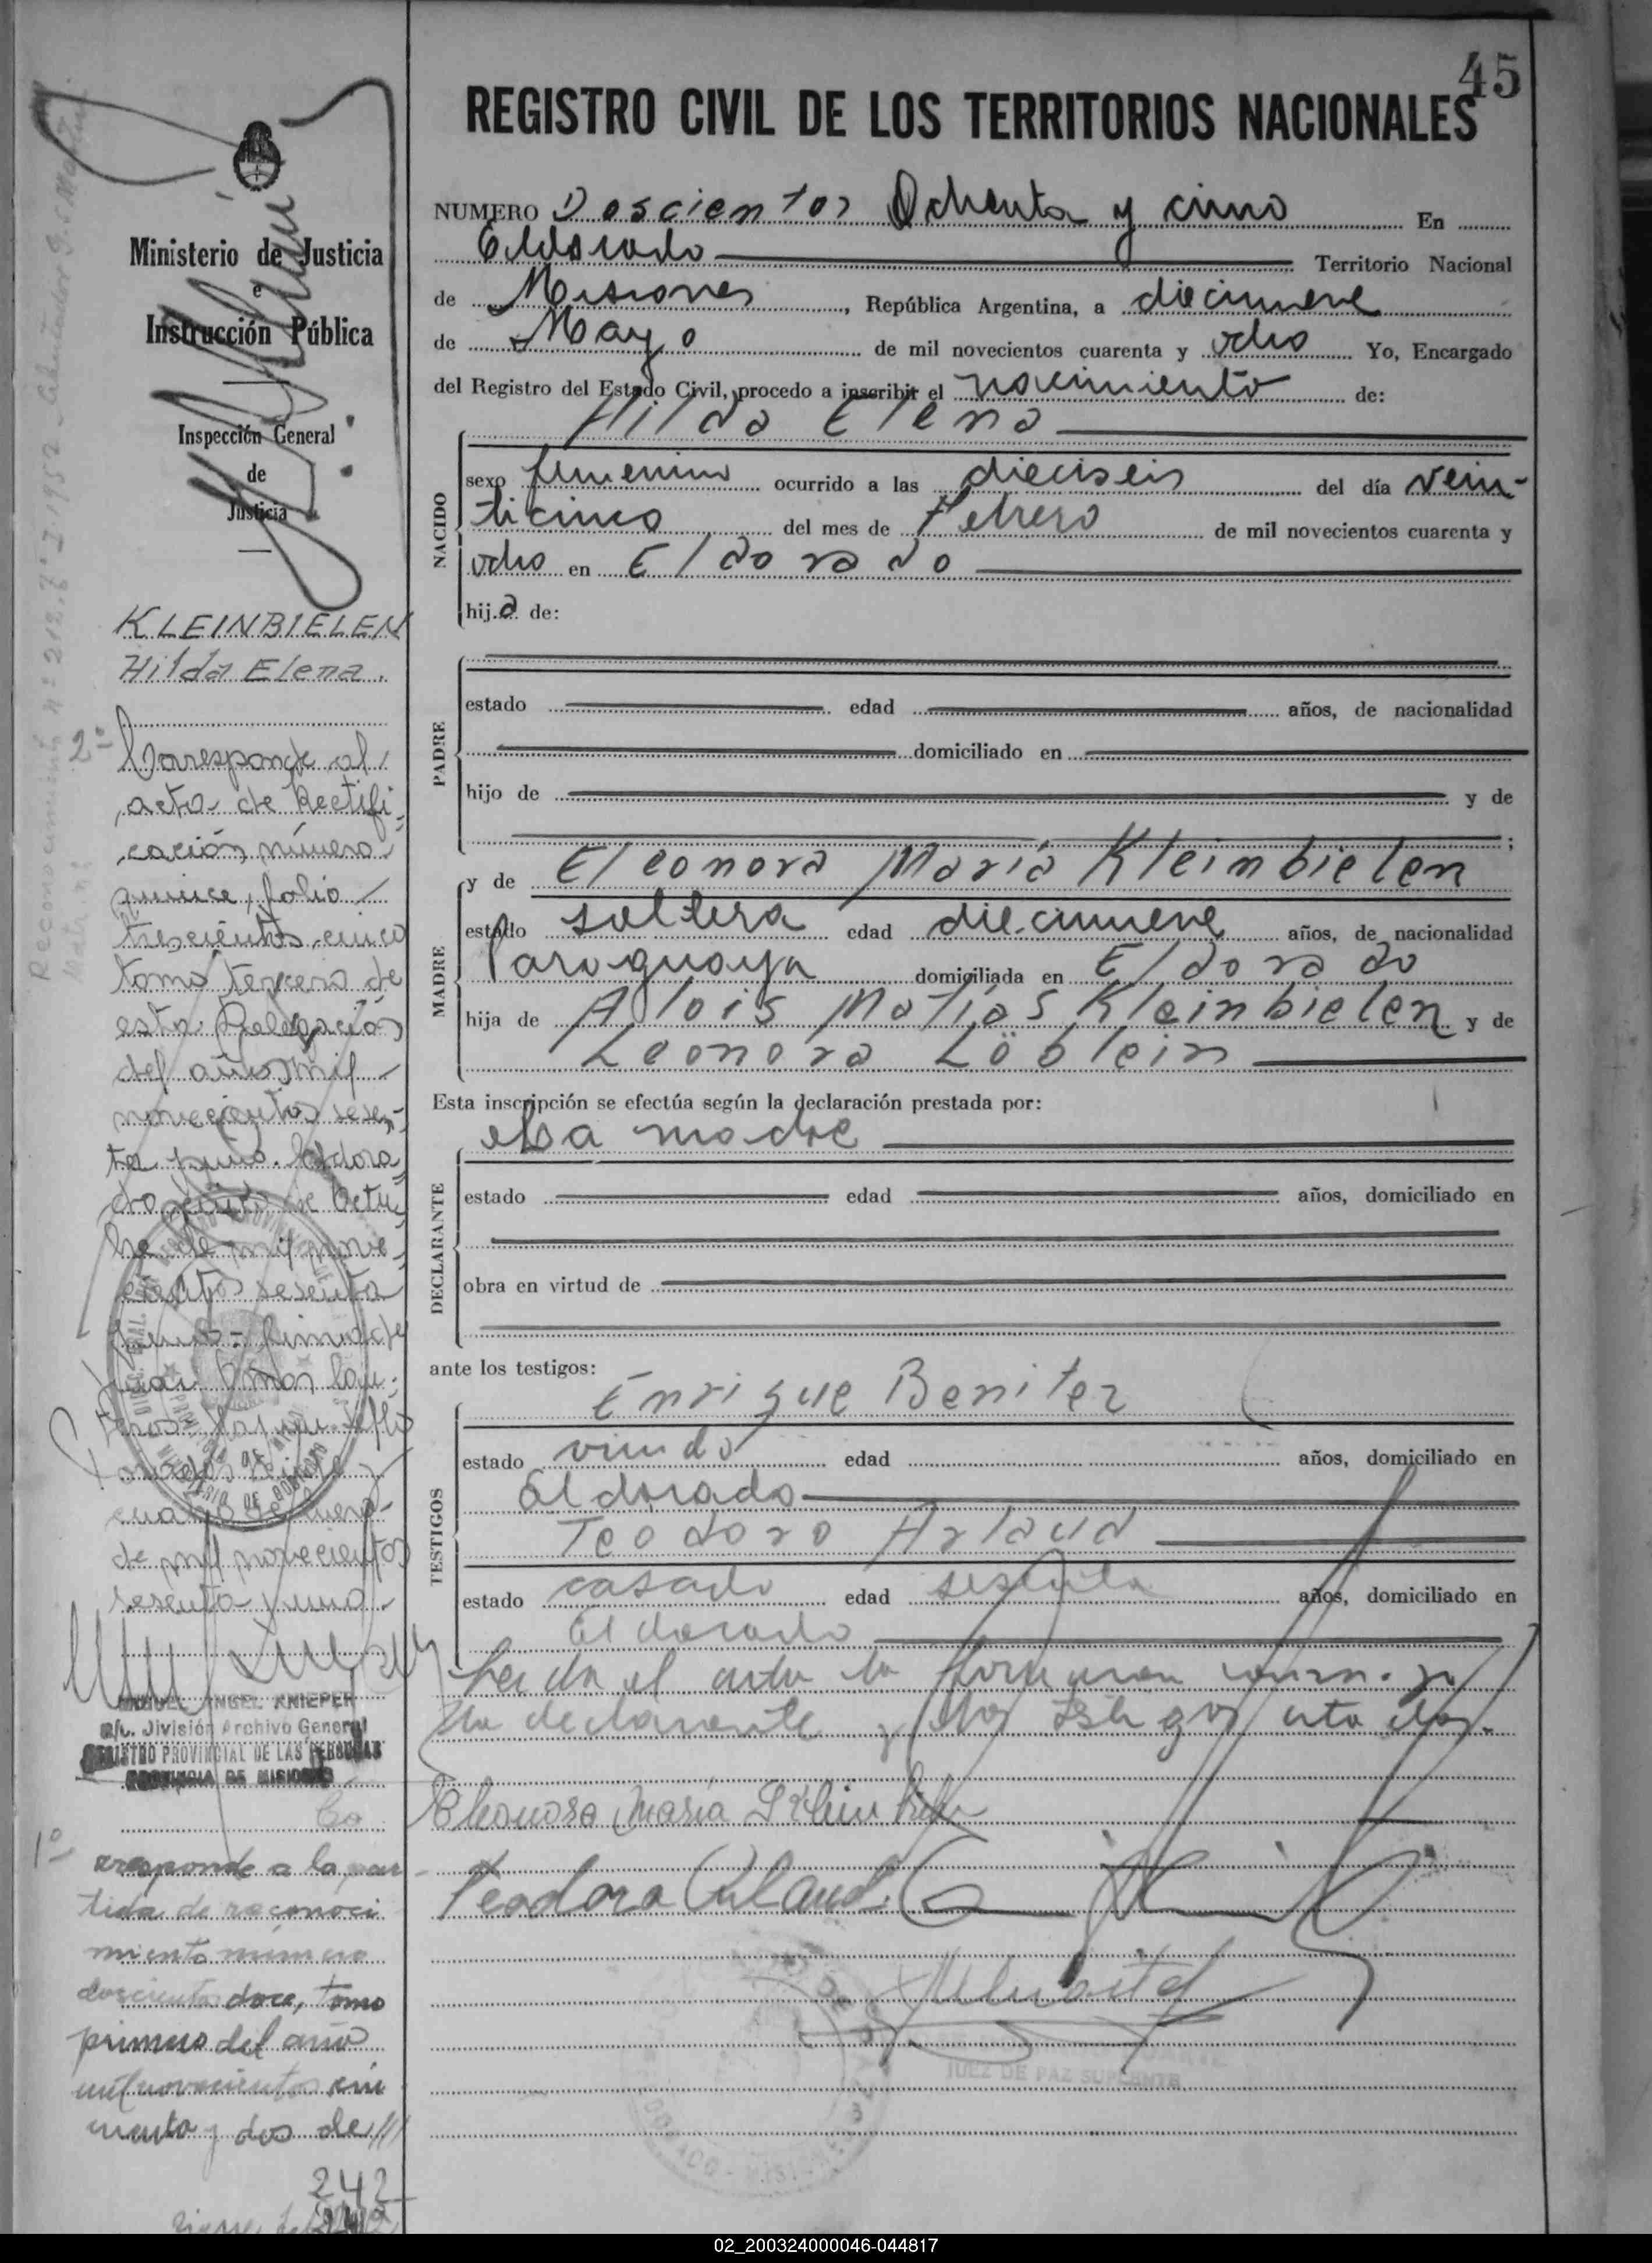 45
REGISTRO CIVIL DE LOS TERRITORIOS NACIONALES
NUMERO Doscientos Ochenta y cinco En
Eldorado Territorio Nacional
de Misiones, República Argentina, a diecinueve
de Mayo de mil novecientos cuarenta y ocho Yo, Encargado
del Registro del Estado Civil, procedo a inscribir el nacimiento de:
Hilda Elena
NACIDO
sexo femenino ocurrido a las dieciseis del día vein-
ticinco del mes de Febrero de mil novecientos cuarenta y
ocho en Eldorado
hija de:
PADRE
estado edad años, de nacionalidad
domiciliado en
hijo de y de
;
MADRE
y de Eleonora María Kleinbielen
estado soltera edad diecinueve años, de nacionalidad
Paraguaya domiciliada en Eldorado
hija de Alois Matías Kleinbielen y de
Leonora Löblein
Esta inscripción se efectúa según la declaración prestada por:
La madre
DECLARANTE
estado edad años, domiciliado en
obra en virtud de
ante los testigos:
TESTIGOS
Enrique Benitez
estado viudo edad años, domiciliado en
Eldorado
Teodoro Arlaud
estado casado edad sesenta años, domiciliado en
Eldorado
Leida el acta la firmaron
la declarante y los testigos
Eleonora María Kleinbielen
Teodoro Arlaud
JUEZ DE PAZ SUPLENTE
Ministerio de Justicia
e
Instrucción Pública
Inspección General
de
Justicia
KLEINBIELEN
Hilda Elena.
2º
Corresponde al
acta de Rectifi-
cación número
quince, folio
trescientos cinco
tomo tercero de
esta Delegación
del año mil
novecientos sesen-
ta y uno. Eldora-
do, de Octu-
bre de mil nove-
cientos sesenta
y uno.- Firmado
Juan Omar
de mil novecientos
sesenta y uno.
MIGUEL ANGEL KNIEPER
a/c. División Archivo General
REGISTRO PROVINCIAL DE LAS PERSONAS
PROVINCIA DE MISIONES
1º
Co
rresponde a la par
tida de reconoci
miento número
doscientos doce, tomo
primero del año
mil novecientos cin
cuenta y dos de///
242
02_200324000046-044817